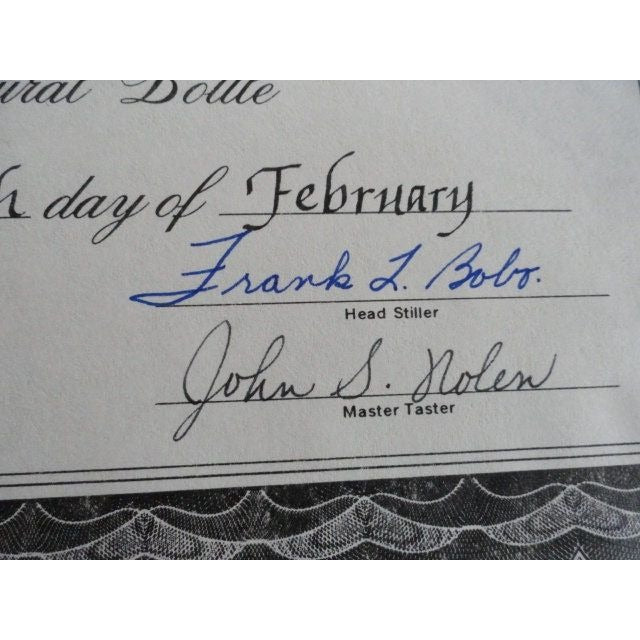 Bottle
day of February
Frank L. Bobo.
Head Stiller
John S. Nolen
Master Taster